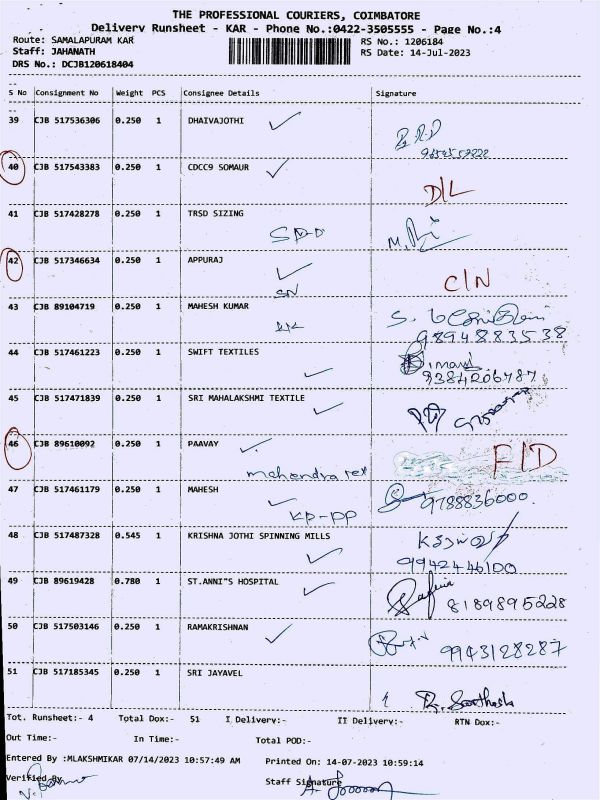 THE PROFESSIONAL COURIERS, COIMBATORE
Delivery Runsheet - KAR - Phone No.:0422-3505555 - Page No.:4
Route: SAMALAPURAM KAR RS No.: 1206184
Staff: JAHANATH RS Date: 14-Jul-2023
DRS No.: DCJB120618404
S No Consignment No Weight PCS Consignee Details Signature
39 CJB 517536306 0.250 1 DHAIVAJOTHI
40 CJB 517543383 0.250 1 CDCC9 SOMAUR
D/L
41 CJB 517428278 0.250 1 TRSD SIZING
42 CJB 517346634 0.250 1 APPURAJ
C/N
43 CJB 89104719 0.250 1 MAHESH KUMAR
9894883538
44 CJB 517461223 0.250 1 SWIFT TEXTILES
9384206787
45 CJB 517471839 0.250 1 SRI MAHALAKSHMI TEXTILE
46 CJB 89610092 0.250 1 PAAVAY
F/D
mahendra
47 CJB 517461179 0.250 1 MAHESH
9788836000
KP-PP
48 CJB 517487328 0.545 1 KRISHNA JOTHI SPINNING MILLS
9942446100
49 CJB 89619428 0.780 1 ST.ANNI"S HOSPITAL
8189895228
50 CJB 517503146 0.250 1 RAMAKRISHNAN
9943128287
51 CJB 517185345 0.250 1 SRI JAYAVEL
Tot. Runsheet:- 4 Total Dox:- 51 I Delivery:- II Delivery:- RTN Dox:-
Out Time:- In Time:- Total POD:-
Entered By :MLAKSHMIKAR 07/14/2023 10:57:49 AM Printed On: 14-07-2023 10:59:14
Verified By Staff Signature